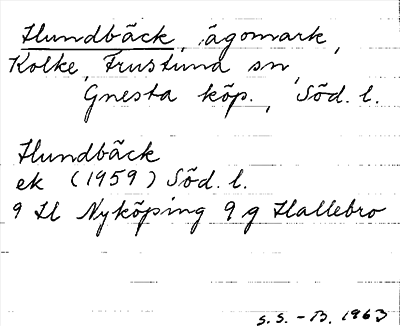 Hundbäck, ägomark,
Kolke, Frustuna sn,
Gnesta köp., Söd. l.
Hundbäck
ek (1959) Söd. l.
9 H Nyköping 9 g Hallebro
S.S. - B. 1963